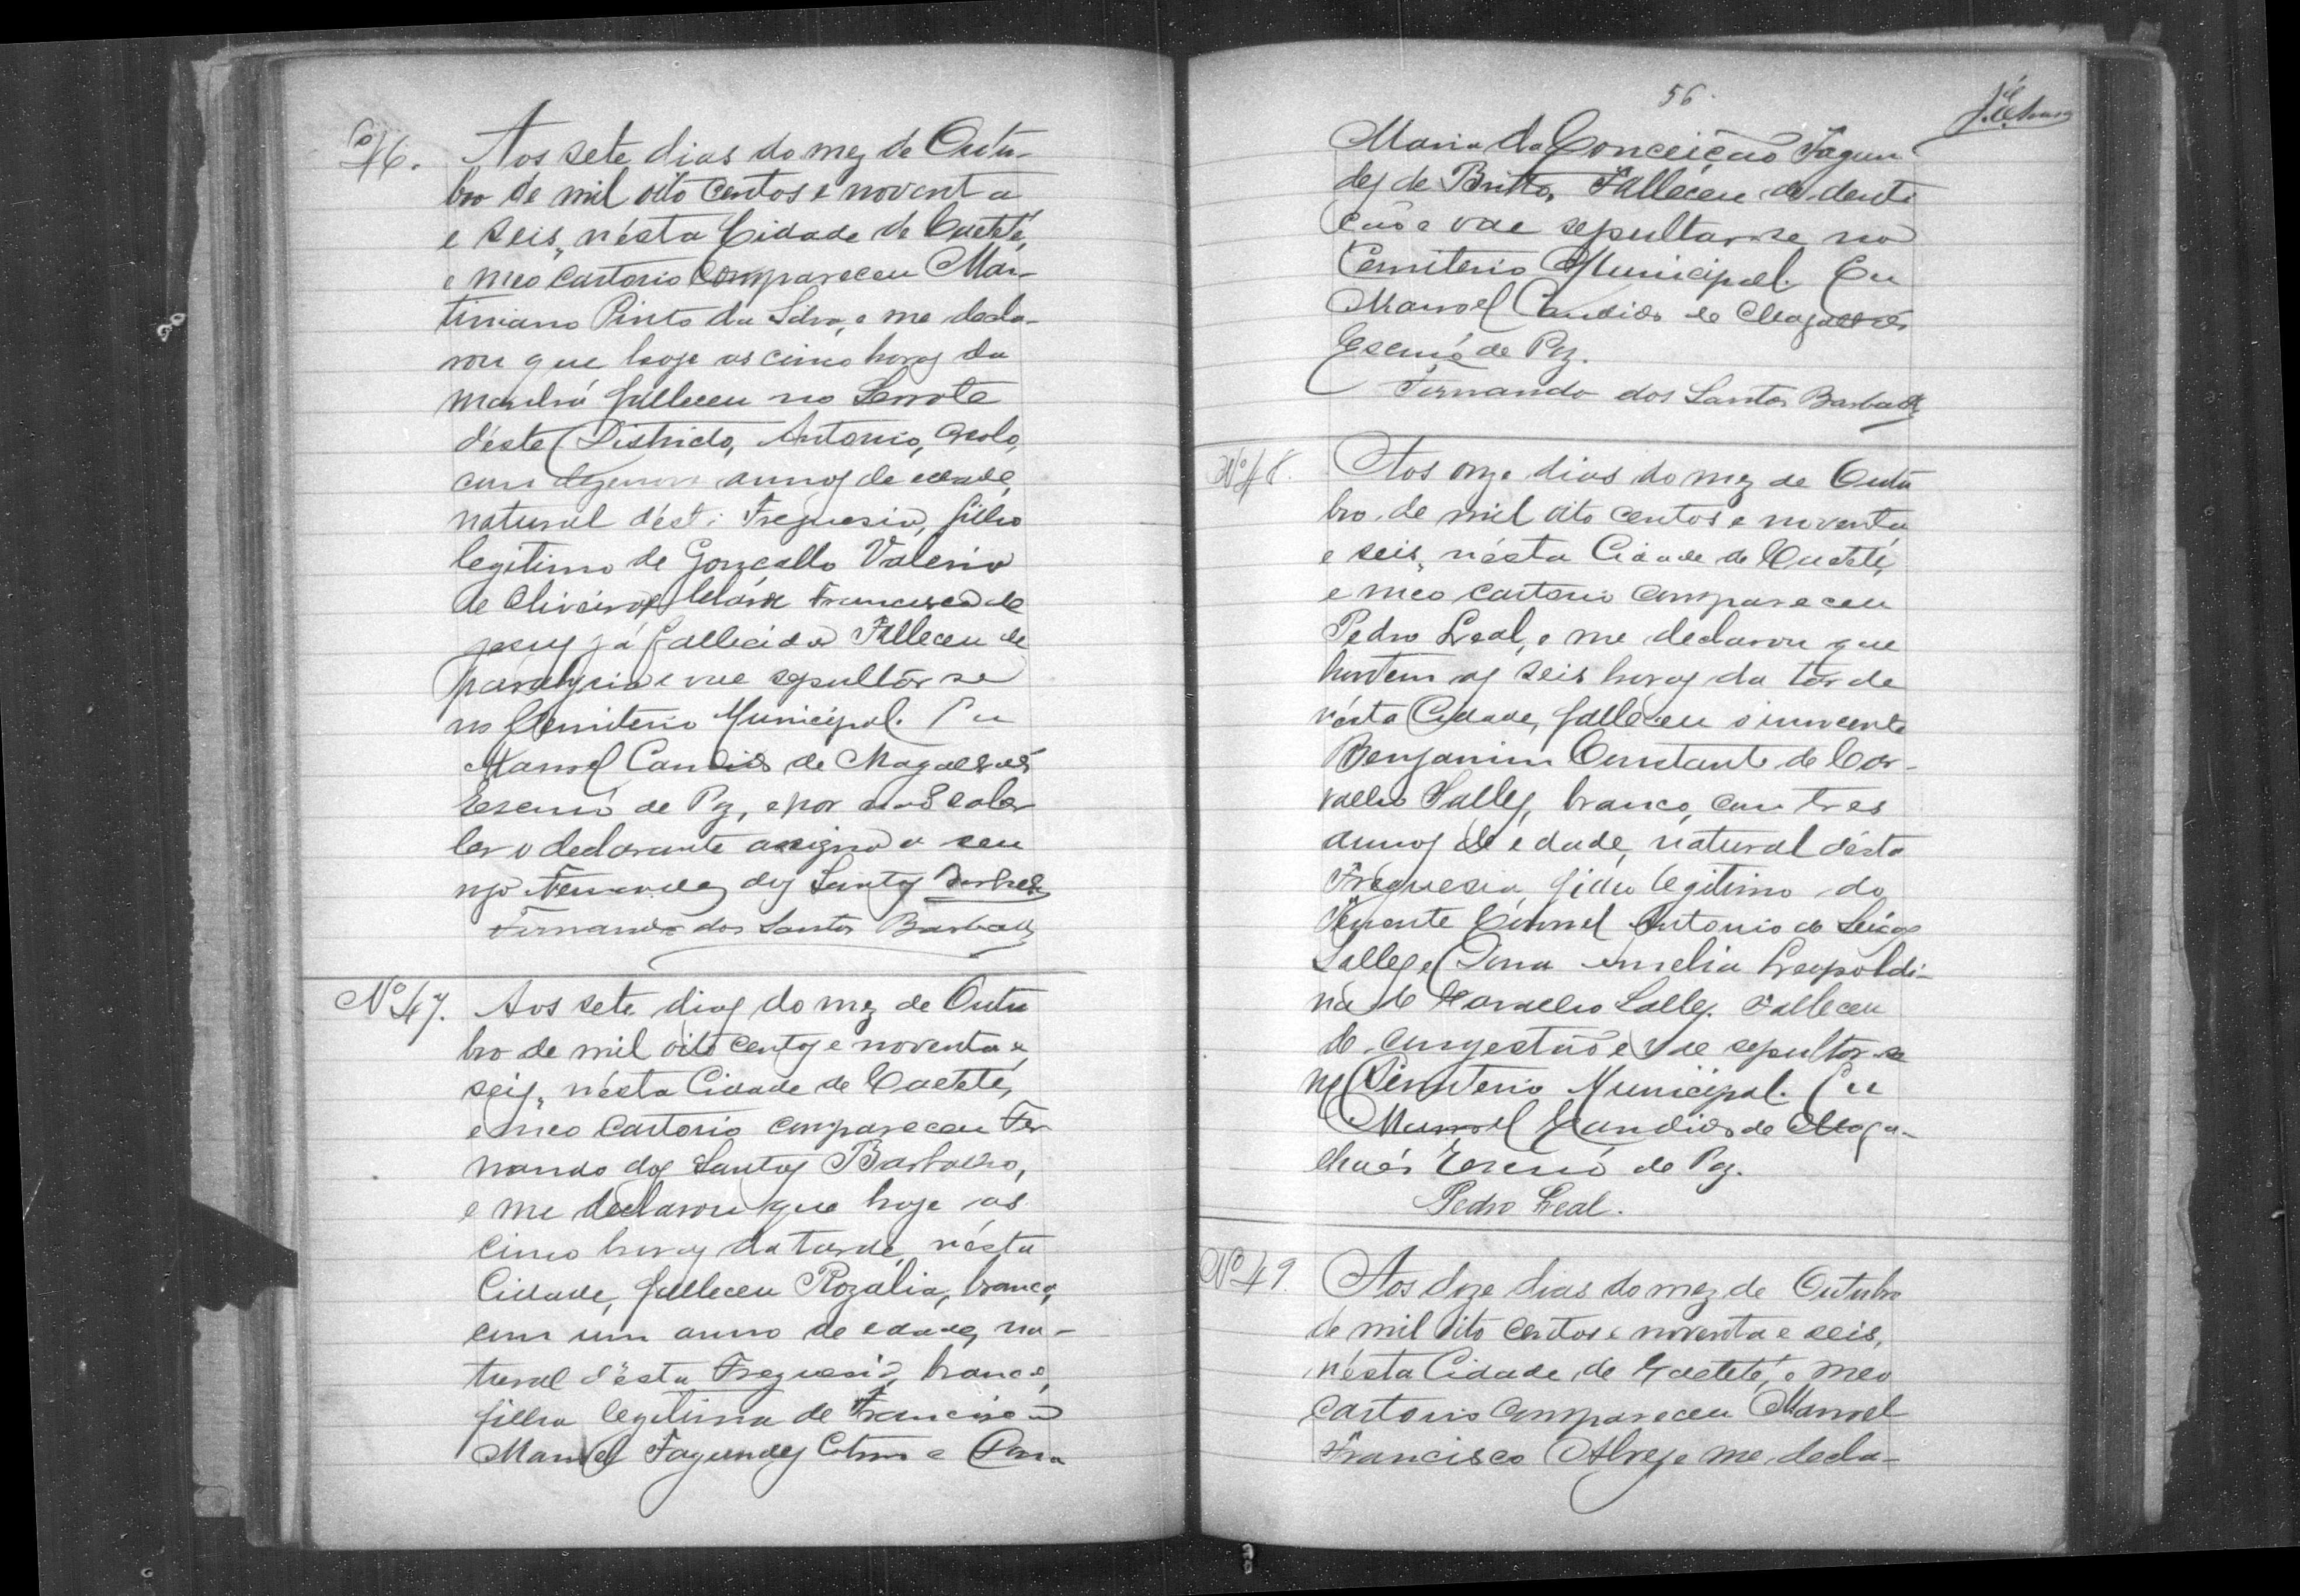 46. Aos sete dias do mez de Outu-
bro de mil oito centos e novent a
e seis, nésta Cidade de Caeteté,
e meo Cartorio compareceu Mar-
tiniano Pinto da Silva, e me decla-
rou que hoje as cinco horas da
manhã falleceu no Serrote
d'éste Districto, Antonio,
com dezenove annos de edade,
natural d'ést Freguesia, filho
legitimo de Gonçallo Valerio
de Oliveira e Francisca de
Jesus já fallecida Falleceu de
paralysia e vae sepultar se
no Cemiterio Municipal. Eu
Manoel Candido de Magalhães
Escrivº de Paz, e por não saber
ler o declarante assigna a seu
rogo Fernandes dos Santos Barbalho
Fernando dos Santos Barbalho
Nº 47. Aos sete dias do mez de Outu
bro de mil oito centos e noventa e
seis, nésta Cidade de Caeteté,
e meo Cartorio compareceu Fer
nando dos Santos Barbalho,
e me declarou que hoje as
cinco horas da tarde, nésta
Cidade, falleceu Rozalia, branca,
com um anno de edade, na-
tural d'ésta Freguesia, branca,
filha legitima de Francisco
Manoel Fagundes Cotrim e Dona
56.
Maria da Conceição Fagun
des de Britto, Falleceu de denti
ção e vae sepultar-se no
Cemiterio Municipal. Eu
Manoel Candido de Magalhães
Escrivº de Paz.
Fernando dos Santos Barbalho
Nº 48. Aos onze dias do mez de Outu
bro de mil oito centos e noventa
e seis, nésta Cidade de Caeteté,
e meo cartorio compareceu
Pedro Leal, e me declarou que
hontem as seis horas da tarde
nésta Cidade, falleceu o innocente
Benjamin Constant de Car-
valho Salles, branco, com tres
annos de édade, natural désta
Freguesia, filho legitimo do
Tenente Coronel Antonio de
Salles e Dona Amelia Leopoldi-
na de Carvalho Salles. Falleceu
de congestão e vae sepultar-se
no Cemiterio Municipal. Eu
Manoel Candido de Maga-
lhães Escrivº de Paz.
Pedro Leal.
Nº 49. Aos doze dias do mez de Outubro
de mil oito centos e noventa e seis,
nésta Cidade de Caeteté, e meo
cartorio compareceu Manoel
Francisco Alves, e me decla-